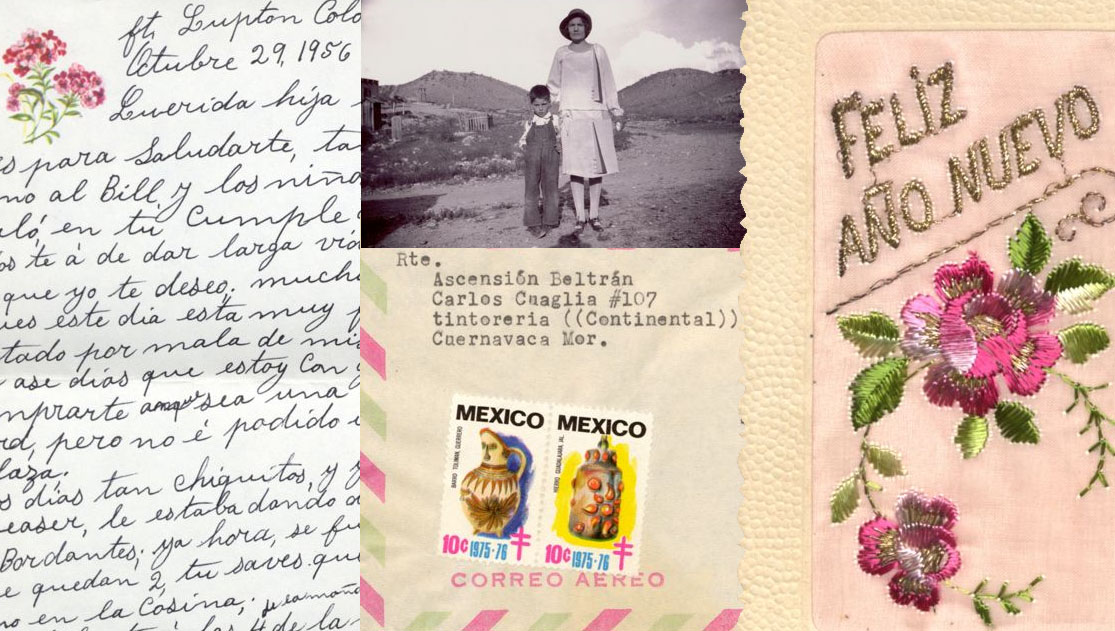 ft. Lupton Colo
Octubre 29, 1956
Querida hija
es para Saludarte, ta
mo al Bill, y los niño
ló, en tu Cumple
os te à de dar larga vi
que yo te deseo. much
ues este dia esta muy
tado por mala de mi
ase dias que estoy Con
mprarte sea una
rd, pero no é podido
laza.
s dias tan chiquitos, y
easer, le estaba dando
Bordantes; ya hora, se fu
e quedan 2, tu saves qu
no en la Cosina;
de la
Rte.
Ascensión Beltrán
Carlos Cuaglia #107
tintoreria ((Continental))
Cuernavaca Mor.
MEXICO
BARRO TOLIMAN, GUERRERO
10¢ 1975-76
MEXICO
VIDRIO GUADALAJARA, JAL.
10¢ 1975-76
CORREO AEREO
FELÍZ
AÑO NUEVO